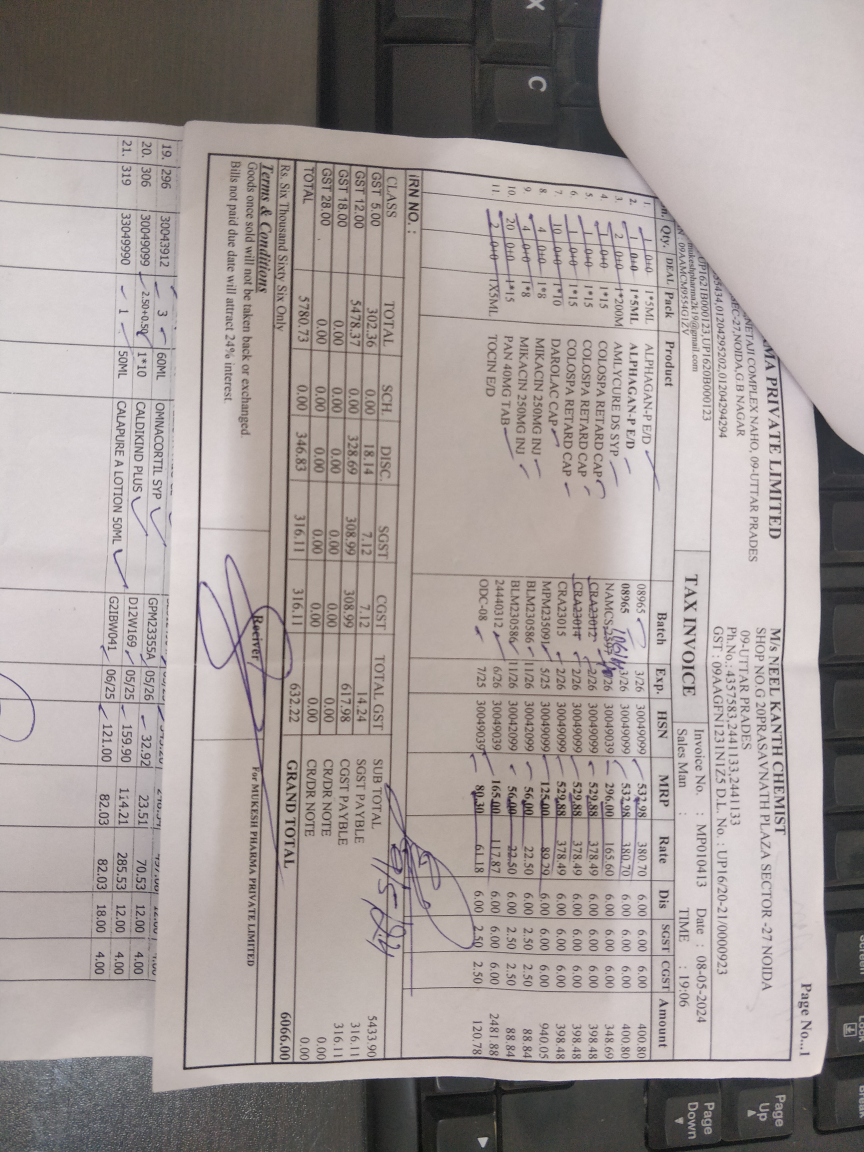 Page No...1
MA PRIVATE LIMITED
NETAJI COMPLEX NAHO, 09-UTTAR PRADES
EC-27,NOIDA,G.B NAGAR
55434,01204295202,01204294294
UP1621B000123,UP1620B000123
mukeshpharma2k19@gmail.com
09AAMCM9554G1ZV
M/s NEEL KANTH CHEMIST
SHOP NO.G 20PRASAVNATH PLAZA SECTOR -27 NOIDA
09-UTTAR PRADES
Ph.No.: 4357583,2441133,2441133
GST : 09AAGFN1231N1Z5 D.L. No. : UP16/20-21/0000923
TAX INVOICE
Invoice No. : MP010413 Date : 08-05-2024
Sales Man : TIME : 19:06
Qty. DEAL Pack Product Batch Exp. HSN MRP Rate Dis SGST CGST Amount
1. 1 0+0 1*5ML ALPHAGAN-P E/D 08965 3/26 30049099 532.98 380.70 6.00 6.00 6.00 400.80
2. 1 0+0 1*5ML ALPHAGAN-P E/D 08965 3/26 30049099 532.98 380.70 6.00 6.00 6.00 400.80
3. 2 0+0 1*200M AMLYCURE DS SYP NAMCS /26 30049039 296.00 165.60 6.00 6.00 6.00 348.69
4. 1 0+0 1*15 COLOSPA RETARD CAP CRA23012 2/26 30049099 529.88 378.49 6.00 6.00 6.00 398.48
5. 1 0+0 1*15 COLOSPA RETARD CAP CRA23014 2/26 30049099 529.88 378.49 6.00 6.00 6.00 398.48
6. 1 0+0 1*15 COLOSPA RETARD CAP CRA23015 2/26 30049099 529.88 378.49 6.00 6.00 6.00 398.48
7. 10 0+0 1*10 DAROLAC CAP MPM235091 5/25 30049099 125.00 89.29 6.00 6.00 6.00 940.05
8. 4 0+0 1*8 MIKACIN 250MG INJ BLM230586 11/26 30042099 56.00 22.50 6.00 2.50 2.50 88.84
9. 4 0+0 1*8 MIKACIN 250MG INJ BLM230586 11/26 30042099 56.00 22.50 6.00 2.50 2.50 88.84
10. 20 0+0 1*15 PAN 40MG TAB 24440312 6/26 30049039 165.00 117.87 6.00 6.00 6.00 2481.88
11. 2 0+0 1X5ML TOCIN E/D ODC-08 7/25 30049039 80.30 61.18 6.00 2.50 2.50 120.78
IRN NO. :
CLASS TOTAL SCH. DISC. SGST CGST TOTAL GST
GST 5.00 302.36 0.00 18.14 7.12 7.12 14.24
GST 12.00 5478.37 0.00 328.69 308.99 308.99 617.98
GST 18.00 0.00 0.00 0.00 0.00 0.00 0.00
GST 28.00 0.00 0.00 0.00 0.00 0.00 0.00
TOTAL 5780.73 0.00 346.83 316.11 316.11 632.22
SUB TOTAL 5433.90
SGST PAYBLE 316.11
CGST PAYBLE 316.11
CR/DR NOTE 0.00
CR/DR NOTE 0.00
GRAND TOTAL 6066.00
Rs. Six Thousand Sixty Six Only
Terms & Conditions
Goods once sold will not be taken back or exchanged.
Bills not paid due date will attract 24% interest.
Reciver
For MUKESH PHARMA PRIVATE LIMITED
19. 296 30043912 3 60ML OMNACORTIL SYP GPM23355A 05/26 32.92 23.51 70.53 12.00 4.00
20. 306 30049099 2.50+0.50 1*10 CALDIKIND PLUS D12W169 05/25 159.90 114.21 285.53 12.00 4.00
21. 319 33049990 1 50ML CALAPURE A LOTION 50ML G2IBW041 06/25 121.00 82.03 82.03 18.00 4.00
X
C
Page Up
Page Down
Lock
Screen